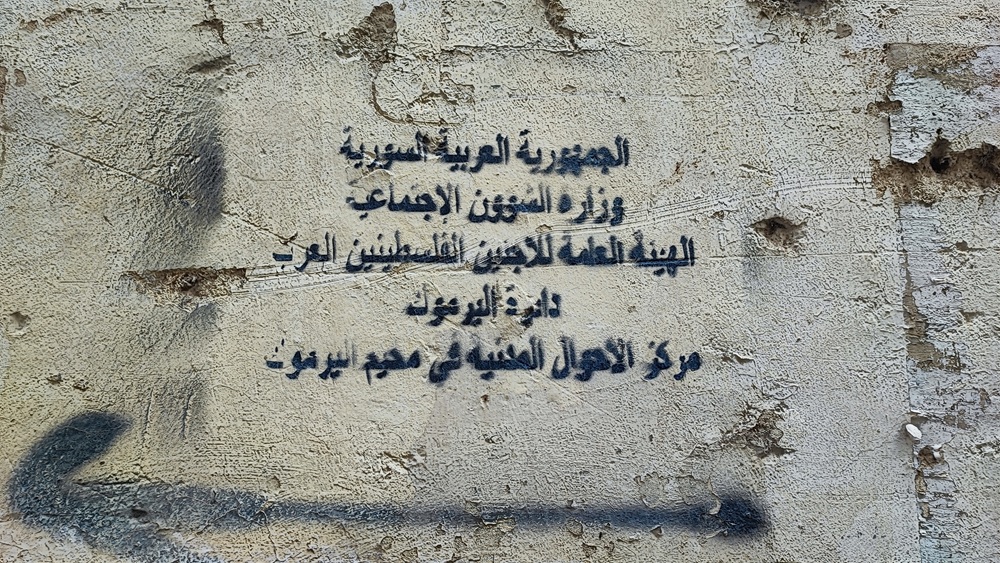 الجمهورية العربية السورية
وزارة الشؤون الإجتماعية
الهيئة العامة للاجئين الفلسطينين العرب
دائرة اليرموك
مركز الاحوال المدنيه في مخيم اليرموك